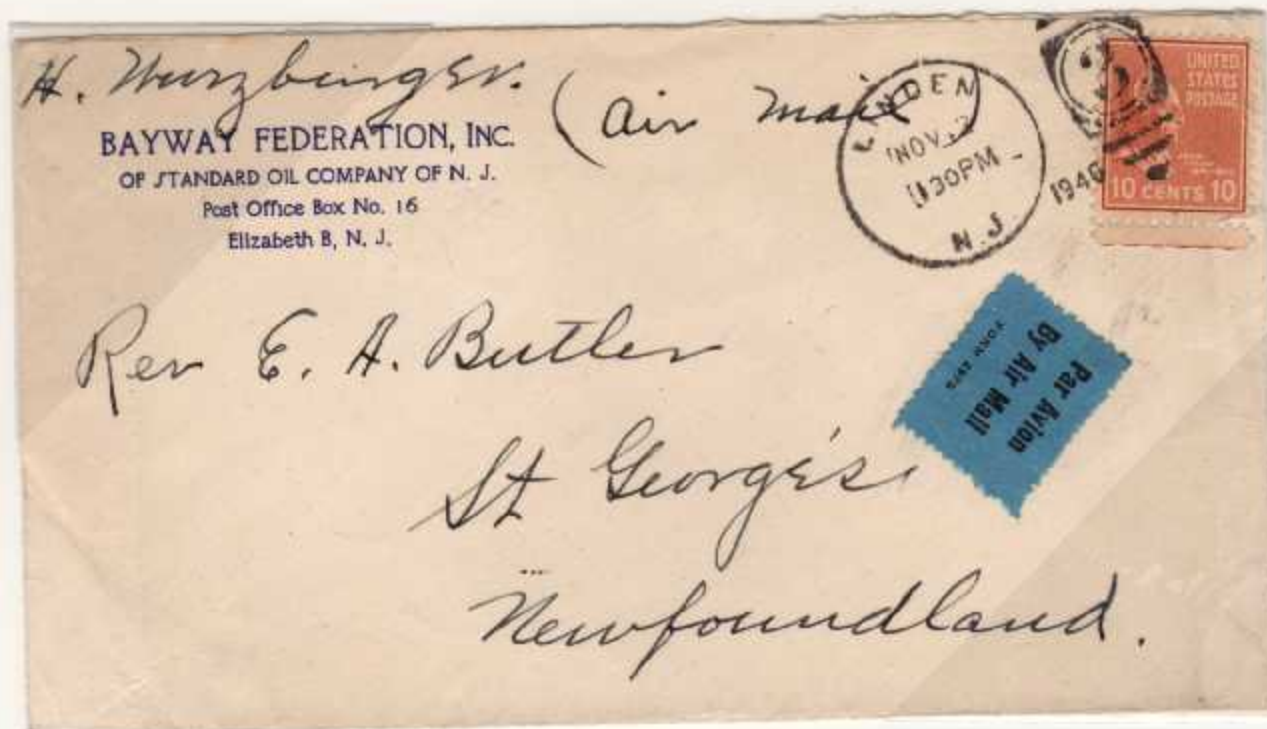 H. Wurzburger.
(air mail)
BAYWAY FEDERATION, INC.
OF STANDARD OIL COMPANY OF N. J.
Post Office Box No. 16
Elizabeth B, N. J.
LINDEN
NOV
30PM
N.J.
1946
UNITED
STATES
POSTAGE
10 CENTS 10
Par Avion
By Air Mail
Rev E. A. Butler
St George's
Newfoundland.